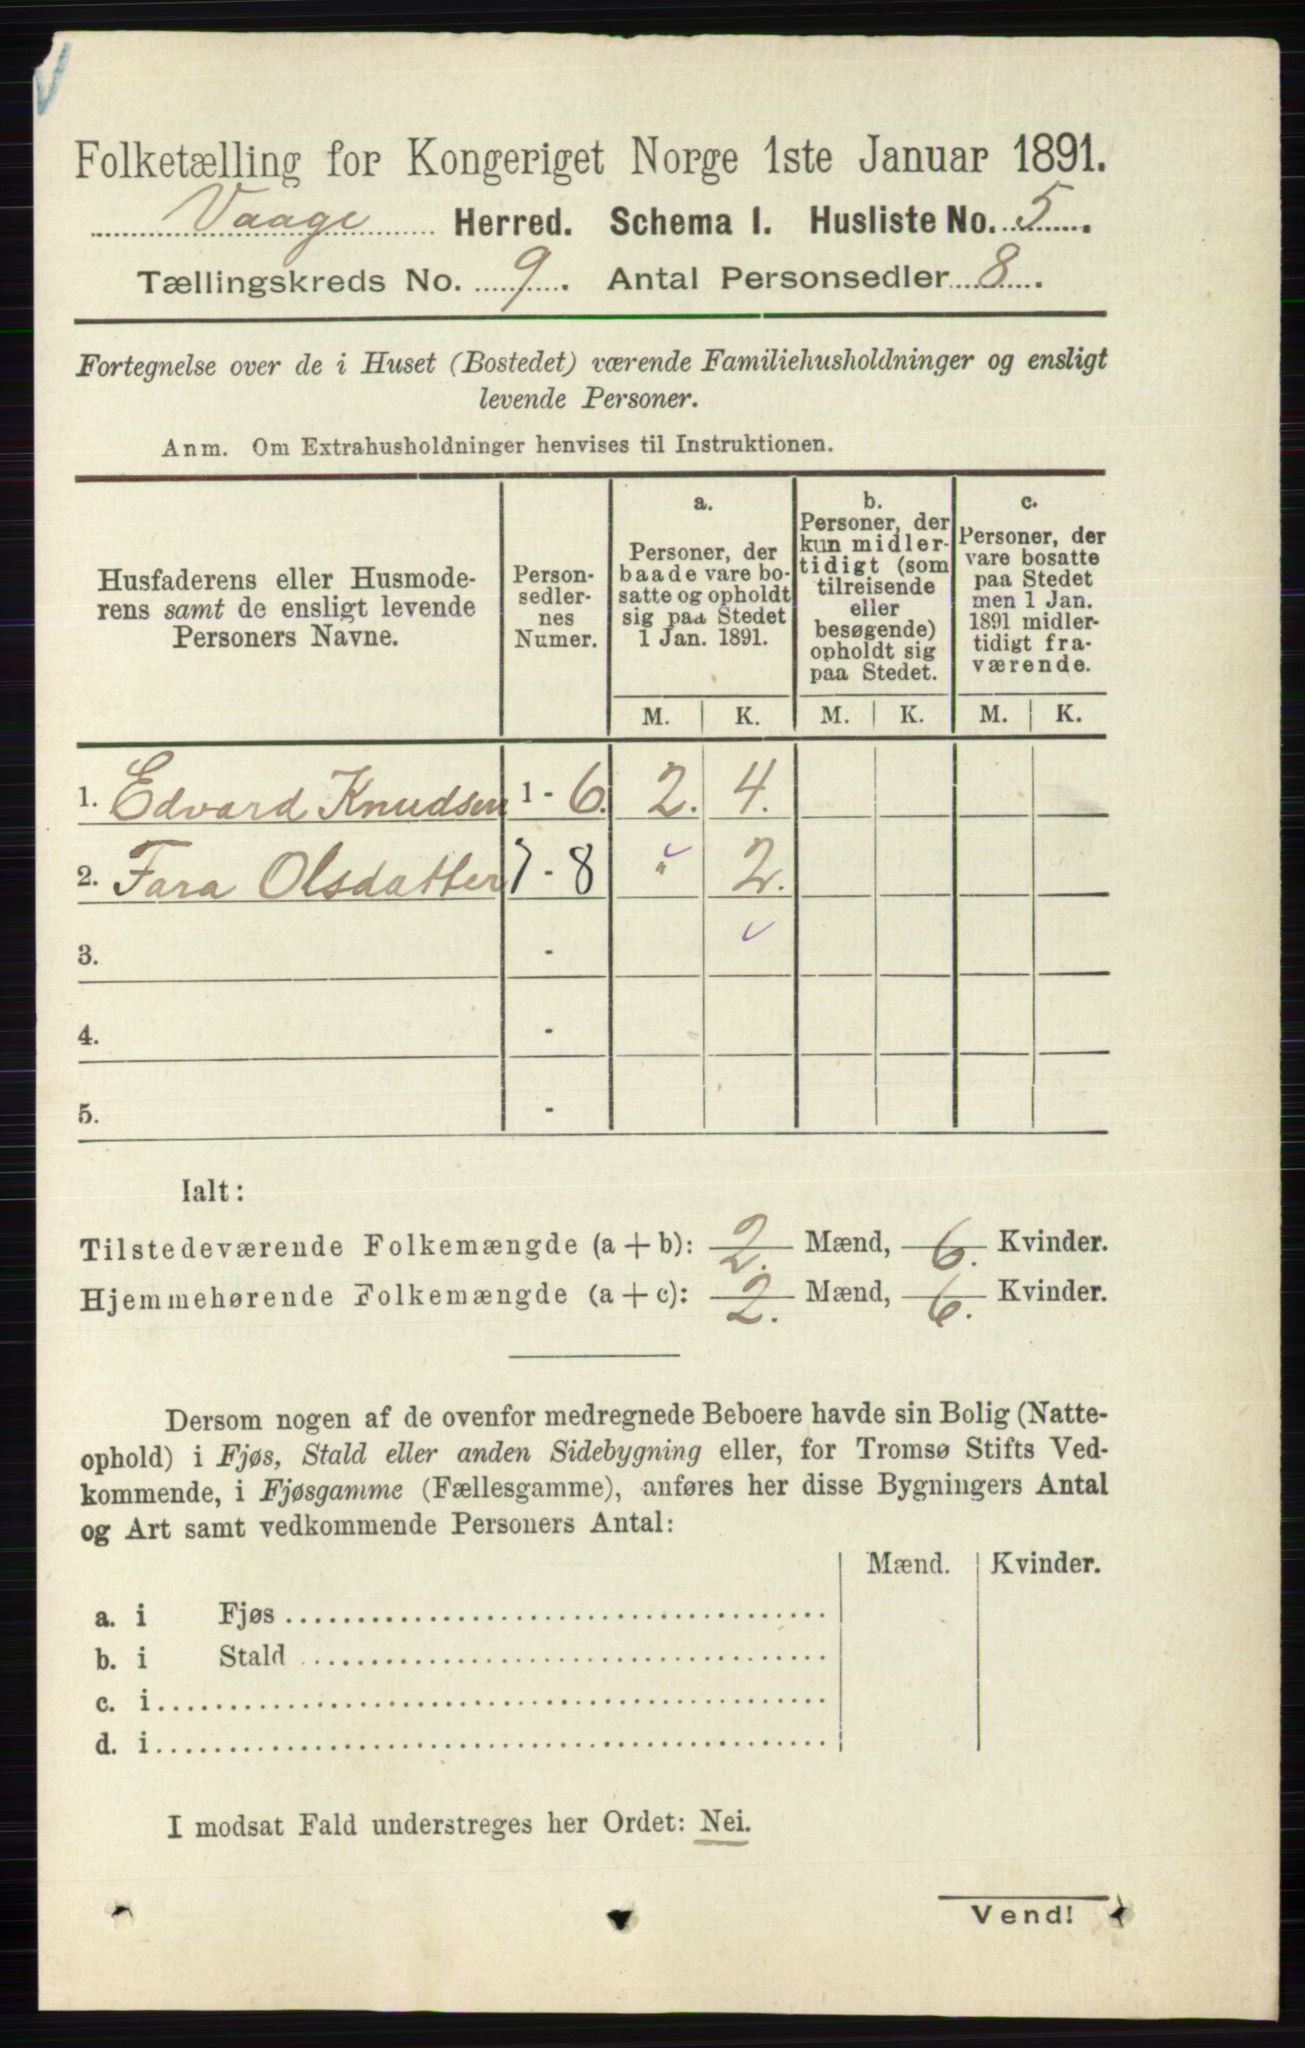 Folketælling for Kongeriget Norge 1ste Januar 1891.
Vaage Herred. Schema I. Husliste No. 5.
Tællingskreds No. 9. Antal Personsedler 8.
Fortegnelse over de i Huset (Bostedet) værende Familiehusholdninger og ensligt
levende Personer.
Anm. Om Extrahusholdninger henvises til Instruktionen.
Husfaderens eller Husmode-
rens samt de ensligt levende
Personers Navne.
Person-
sedler-
nes
Numer.
a.
Personer, der
baade vare bo-
satte og opholdt
sig paa Stedet
1 Jan. 1891.
b.
Personer, der
kun midler-
tidigt (som
tilreisende
eller
besøgende)
opholdt sig
paa Stedet.
c.
Personer, der
vare bosatte
paa Stedet
men 1 Jan.
1891 midler-
tidigt fra-
værende.
M. K. M. K. M. K.
1. Edvard Knudsen 1 - 6. 2. 4.
2. Fara Olsdatter 7 - 8 " 2.
3. -
4. -
5. -
Ialt:
Tilstedeværende Folkemængde (a + b): 2. Mænd, 6. Kvinder.
Hjemmehørende Folkemængde (a + c): 2. Mænd, 6. Kvinder.
Dersom nogen af de ovenfor medregnede Beboere havde sin Bolig (Natte-
ophold) i Fjøs, Stald eller anden Sidebygning eller, for Tromsø Stifts Ved-
kommende, i Fjøsgamme (Fællesgamme), anføres her disse Bygningers Antal
og Art samt vedkommende Personers Antal:
Mænd. Kvinder.
a. i Fjøs
b. i Stald
c. i
d. i
I modsat Fald understreges her Ordet: Nei.
Vend!